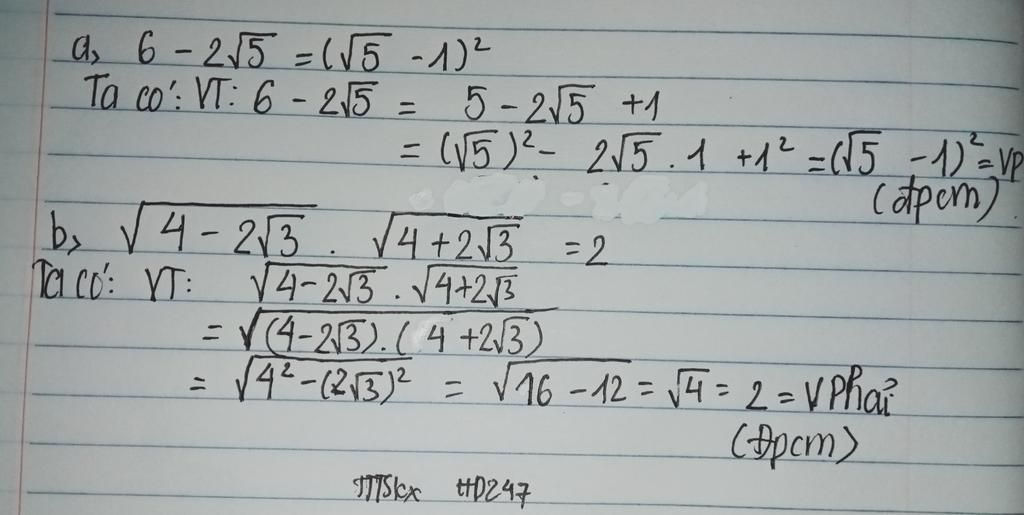 a, 6 - 2√5 = (√5 - 1)²
Ta có: VT: 6 - 2√5 = 5 - 2√5 + 1
= (√5)² - 2√5 . 1 + 1² = (√5 - 1)² = VP
(đpcm)
b, √(4 - 2√3) . √(4 + 2√3) = 2
Ta có: VT: √(4 - 2√3) . √(4 + 2√3)
= √((4 - 2√3) . (4 + 2√3))
= √(4² - (2√3)²) = √(16 - 12) = √4 = 2 = VPhải
(Đpcm)
HD247